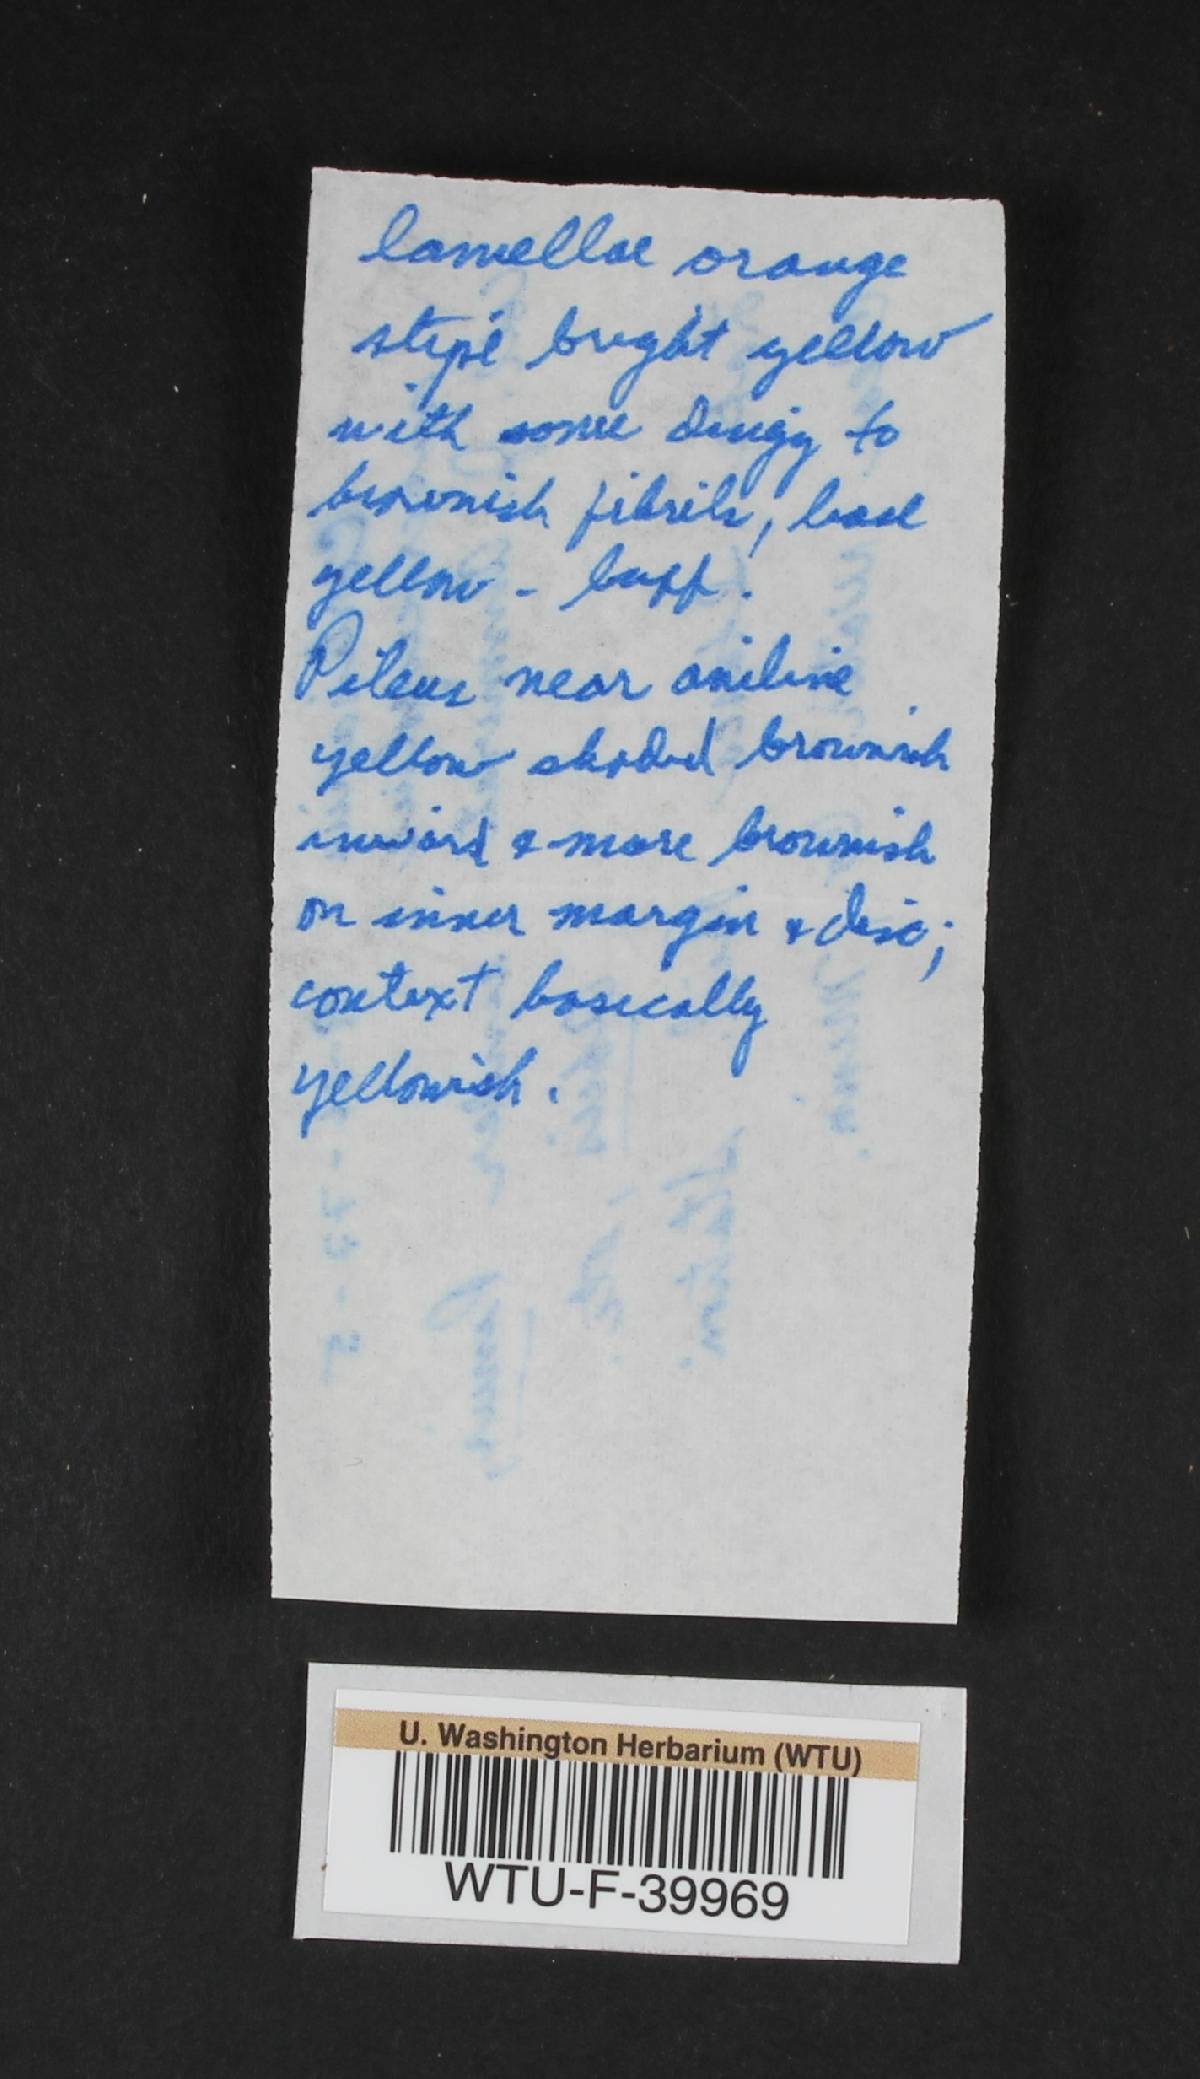 lamellae orange
stipe bright yellow
with some dingy to
brownish fibrils, base
yellow - buff.
Pileus near aniline
yellow shaded brownish
inward & more brownish
on inner margin & disc;
context basically
yellowish.
U. Washington Herbarium (WTU)
WTU-F-39969